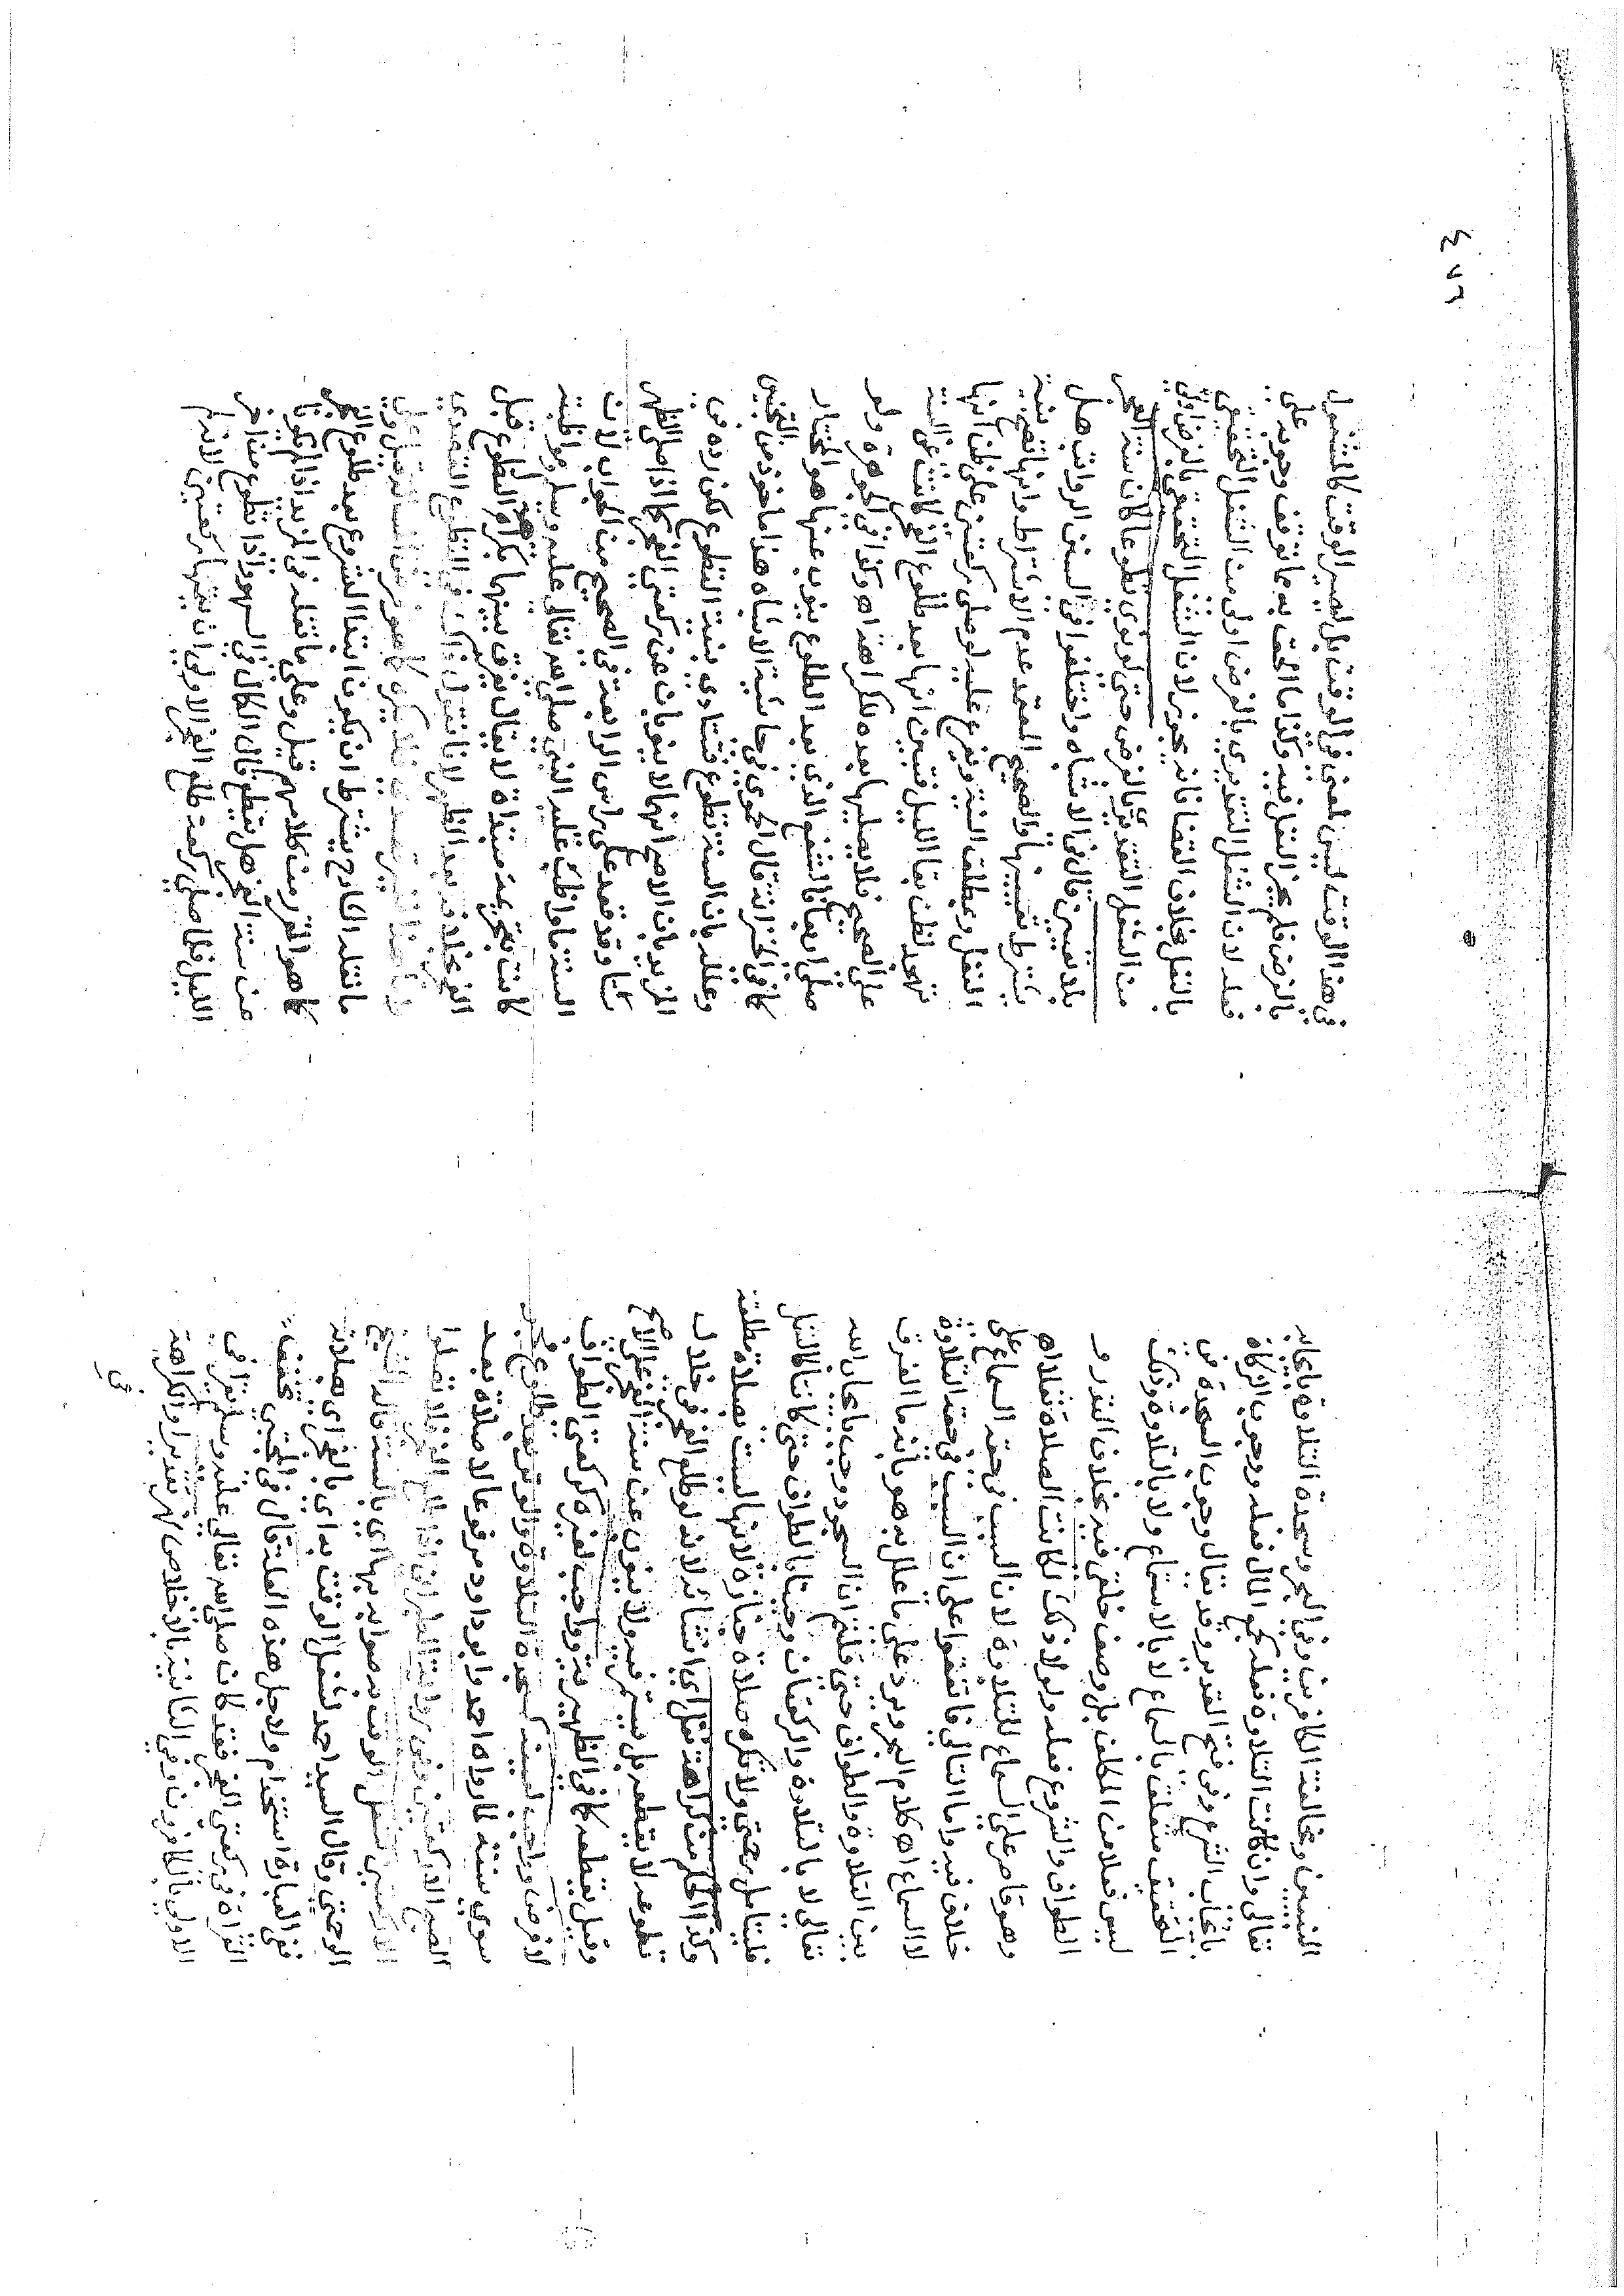 النبيين ومخالفة الكافرين وفي البحر وسجدة التلاوة بايجابه
تعالى وان كانت التلاوة فعله كجمع المال فعله ووجوب الزكاة
بايجاب الشرع وفي فتح القدير وقد يقال وجوب السجدة في
التحقيق متعلق بالسماع لا بالاستماع ولا بالتلاوة وذلك
ليس فعلا من المكلف بل وصف خلقي فيه بخلاف النذر و
الطواف والشروع فعله ولولا ذلك لكانت الصلاة نفلا اه
وهو قاصر على السماع للتلاوة لان السبب في حقه السماع على
خلاف فيه واما التالي فاتفقوا على ان السبب في حقه التلاوة
لا السماع اه كلام البحر ويرد على ما علل به هو بانه ما الفرق
بين التلاوة والطواف حتى قلتم ان السجود وجب بايجاب الله
تعالى لا بالتلاوة والركعتان وجبتا بالطواف حتى كانتا كالنفل
فليتامل رحمتي ولا تكره صلاة جنازة لانها ليست بصلاة مطلقة
وكذا الحكم من كراهة نفل اي انشائه لانه لو طلع الفجر في خلال
تطوعه لا يقطعه بل يتمه ولا ينوب عن سنة الفجر على الاصح
وقيل يقطعه كما في الظهيرية وواجب لغيره كركعتي الطواف
لا فرض وواجب لعينه كسجدة التلاوة والوتر بعد طلوع فجر
سوى سنته لما رواه احمد وابو داود مرفوعا لا صلاة بعد
الصبح الا ركعتين وفي رواية الطبراني اذا طلع الفجر فلا تصلوا
الا ركعتين لشغل الوقت به صوابه بها اي بالسنة قاله الشيخ
الرحمتي وقال السيد احمد لشغل الوقت به اي بالفجر اي بصلاته
ففي العبارة استخدام ولاجل هذه العلة قال في المجتبى تخفف
القراءة في ركعتي الفجر فقد كان صلى الله تعالى عليه وسلم يقرا في
الاولى بالكافرون وفي الثانية بالاخلاص نهر تقديرا والكراهة
في
٤٧٦
في هذا الوقت ليس لمعنى في الوقت بل ليصير الوقت كالمشغول
بالفرض فلم يجز النفل فيه وكذا ما الحق به مما توقف وجوبه على
فعله لان الشغل التقديري بالفرض اولى من الشغل الحقيقي
بالنفل بخلاف القضا فانه يجوز لان الشغل الحقيقي بالفرض اولى
من الشغل التقديري بالفرض حتى لو نوى تطوعا كان سنة الفجر
بلا تعيين قال في الاشباه واختلفوا في السنن الرواتب هل
يشترط تعيينها والصحيح المعتمد عدم الاشتراط وانها تصح بنية
النفل وبمطلق النية وتفرع عليه لو صلى ركعتين على ظن انها
تهجد لظن بقا الليل فتبين انها بعد طلوع الفجر كانت عن السنة
على الصحيح فلا يصليها بعده للكراهة اه وكذا في الجوهرة ولو
صلى اربعا فالشفع الذي بعد الطلوع ينوب عنها هو المختار
كما في الخزانة قال الحموي في حاشية الاشباه هذا ماخوذ من التجنيس
وعلله بان السنة تطوع فتتادى بنية التطوع لكن رده في
المزيد بان الاصح انها لا ينوبان عن ركعتي الفجر كما اذا صلى الظهر
ستا وقد قعد على راس الرابعة في الصحيح من الجواب لان
السنة ما واظب عليه النبي صلى الله تعالى عليه وسلم ومواظبته
كانت بتحريمة مبتداة لا يقال يفرق بينهما بكراهة التطوع قبل
الفجر بخلافه بعد الظهر لانا نقول ذاك في التطوع القصدي
ما نقله الشارح يشترط ان يكون ابتدا الشروع بعد طلوع الفجر
كما هو المقرر من كلامهم قيل وعلى ما نقله في المزيد اذا لم تكونا
عن سنة الفجر هل يقطع قال الكمال في السهو واذا تطوع من اخر
الليل فلما صلى ركعة طلع الفجر الاولى ان يتمها ركعتين لانه لم